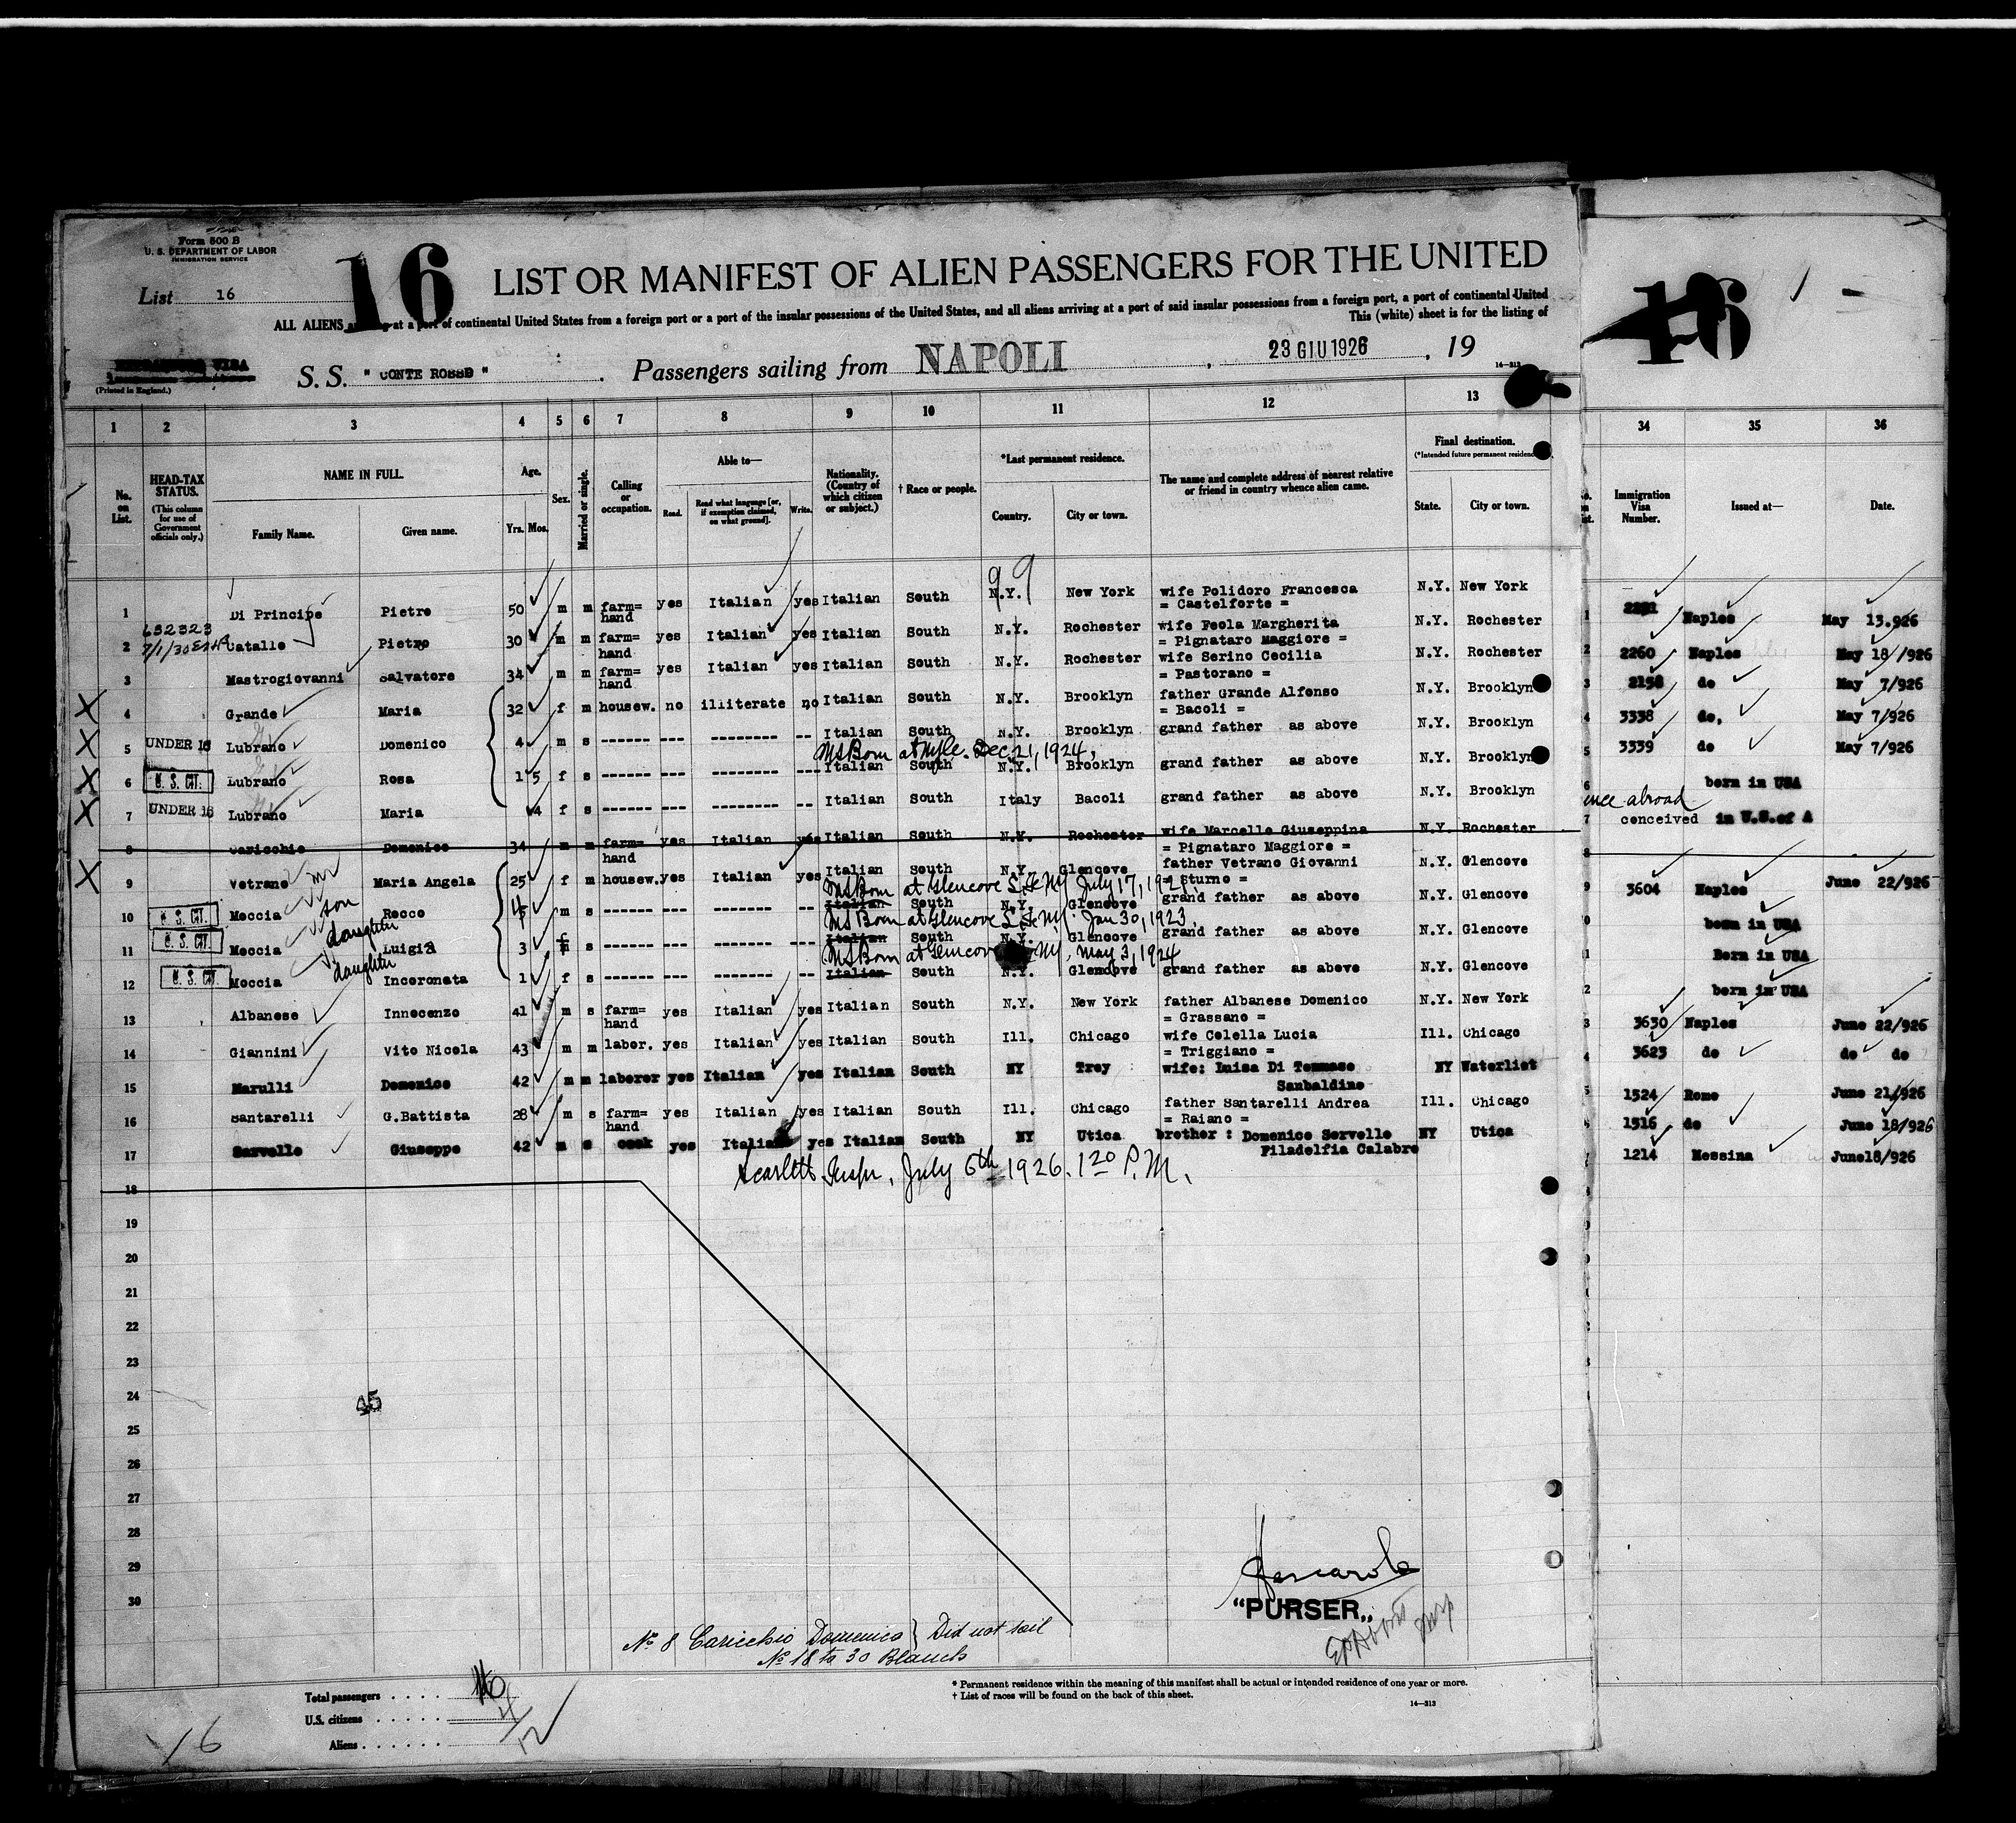 Form 500 B
U. S. DEPARTMENT OF LABOR
IMMIGRATION SERVICE
List 16
16
LIST OR MANIFEST OF ALIEN PASSENGERS FOR THE UNITED
ALL ALIENS at a port of continental United States from a foreign port or a port of the insular possessions of the United States, and all aliens arriving at a port of said insular possessions from a foreign port, a port of continental United
This (white) sheet is for the listing of
(Printed in England.)
S. S. " CONTE ROSSO " . Passengers sailing from NAPOLI , 23 GIU 1926 , 19
14—313
1 2 3 4 5 6 7 8 9 10 11 12 13 34 35 36
No. on List.
HEAD-TAX STATUS.
(This column for use of Government officials only.)
NAME IN FULL.
Family Name. Given name.
Age.
Yrs. Mos.
Sex.
Married or single.
Calling or occupation.
Able to—
Read. Read what language [or, if exemption claimed, on what ground]. Write.
Nationality. (Country of which citizen or subject.)
† Race or people.
*Last permanent residence.
Country. City or town.
The name and complete address of nearest relative or friend in country whence alien came.
Final destination.
(*Intended future permanent residence
State. City or town.
Immigration Visa Number.
Issued at—
Date.
99
1 Di Principe Pietro 50 m m farm= hand yes Italian yes Italian South N.Y. New York wife Polidoro Francesca = Castelforte = N.Y. New York Naples May 13.926
632323
7/1/30
2 Catallo Pietro 30 m m farm= hand yes Italian yes Italian South N.Y. Rochester wife Feola Margherita = Pignataro Maggiore = N.Y. Rochester 2260 Naples May 18/926
3 Mastrogiovanni Salvatore 34 m m farm= hand yes Italian yes Italian South N.Y. Rochester wife Serino Cecilia = Pastorano = N.Y. Rochester 2158 do May 7/926
X 4 Grande Maria 32 f m housew. no illiterate no Italian South N.Y. Brooklyn father Grande Alfonso = Bacoli = N.Y. Brooklyn 3338 do, May 7/926
X 5 UNDER 16 Lubrano Domenico 4 m s ------ --- --------- -- Italian South N.Y. Brooklyn grand father as above N.Y. Brooklyn 3339 do May 7/926
Born at Dec 21, 1924,
X 6 U. S. CIT. Lubrano Rosa 1 5 f s ------ --- --------- --- Italian South N.Y. Brooklyn grand father as above N.Y. Brooklyn born in USA
X 7 UNDER 16 Lubrano Maria 4 f s ------ --- --------- -- Italian South Italy Bacoli grand father as above N.Y. Brooklyn abroad conceived in U.S.of A
8 Caricchio Domenico 34 m m farm= hand yes Italian yes Italian South N.Y. Rochester wife Marcello Giuseppina = Pignataro Maggiore = N.Y. Rochester
X 9 Vetrano Maria Angela 25 f m housew. yes Italian yes Italian South N.Y. Glencove father Vetrano Giovanni = Sturno = N.Y. Glencove 3604 Naples June 22/926
Born at Glencove L.I. NY July 17, 1921
10 U. S. CIT. Moccia son Rocco m s ------ --- -------- -- Italian South N.Y. Glencove grand father as above N.Y. Glencove born in USA
Born at Glencove L.I. NY. Jan 30, 1923.
11 U. S. CIT. Moccia daughter Luigia 3 f s ------ --- -------- --- Italian South N.Y. Glencove grand father as above N.Y. Glencove Born in USA
Born at Glencove NY, May 3, 1924
12 U. S. CIT. Moccia daughter Incoronata 1 f s ------ --- ------- -- Italian South N.Y. Glencove grand father as above N.Y. Glencove born in USA
13 Albanese Innocenzo 41 m s farm= hand yes Italian yes Italian South N.Y. New York father Albanese Domenico = Grassano = N.Y. New York 3630 Naples June 22/926
14 Giannini Vito Nicola 43 m m labor. yes Italian yes Italian South Ill. Chicago wife Colella Lucia = Triggiano = Ill. Chicago 3623 do do do
15 Marulli Domenico 42 m m laborer yes Italian yes Italian South NY Troy wife: Luisa Di Tommaso Sanbaldino NY Waterliet 1524 Rome June 21/926
16 Santarelli G.Battista 28 m s farm= hand yes Italian yes Italian South Ill. Chicago father Santarelli Andrea = Raiano = Ill. Chicago 1516 do June 18/926
17 Servello Giuseppe 42 m s cook yes Italian yes Italian South NY Utica brother : Domenico Servello Filadelfia Calabre NY Utica 1214 Messina June18/926
Scarlett Inspr, July 6th 1926. 1 20 P.M.
18
19
20
21
22
23
24
45
25
26
27
28
29
30
"PURSER„
No 8 Caricchio Domenico } Did not sail
No 18 to 30 Blancks
Total passengers . . . . .
U.S. citizens . . . . . .
Aliens . . . . . .
16
* Permanent residence within the meaning of this manifest shall be actual or intended residence of one year or more.
† List of races will be found on the back of this sheet.
14—313